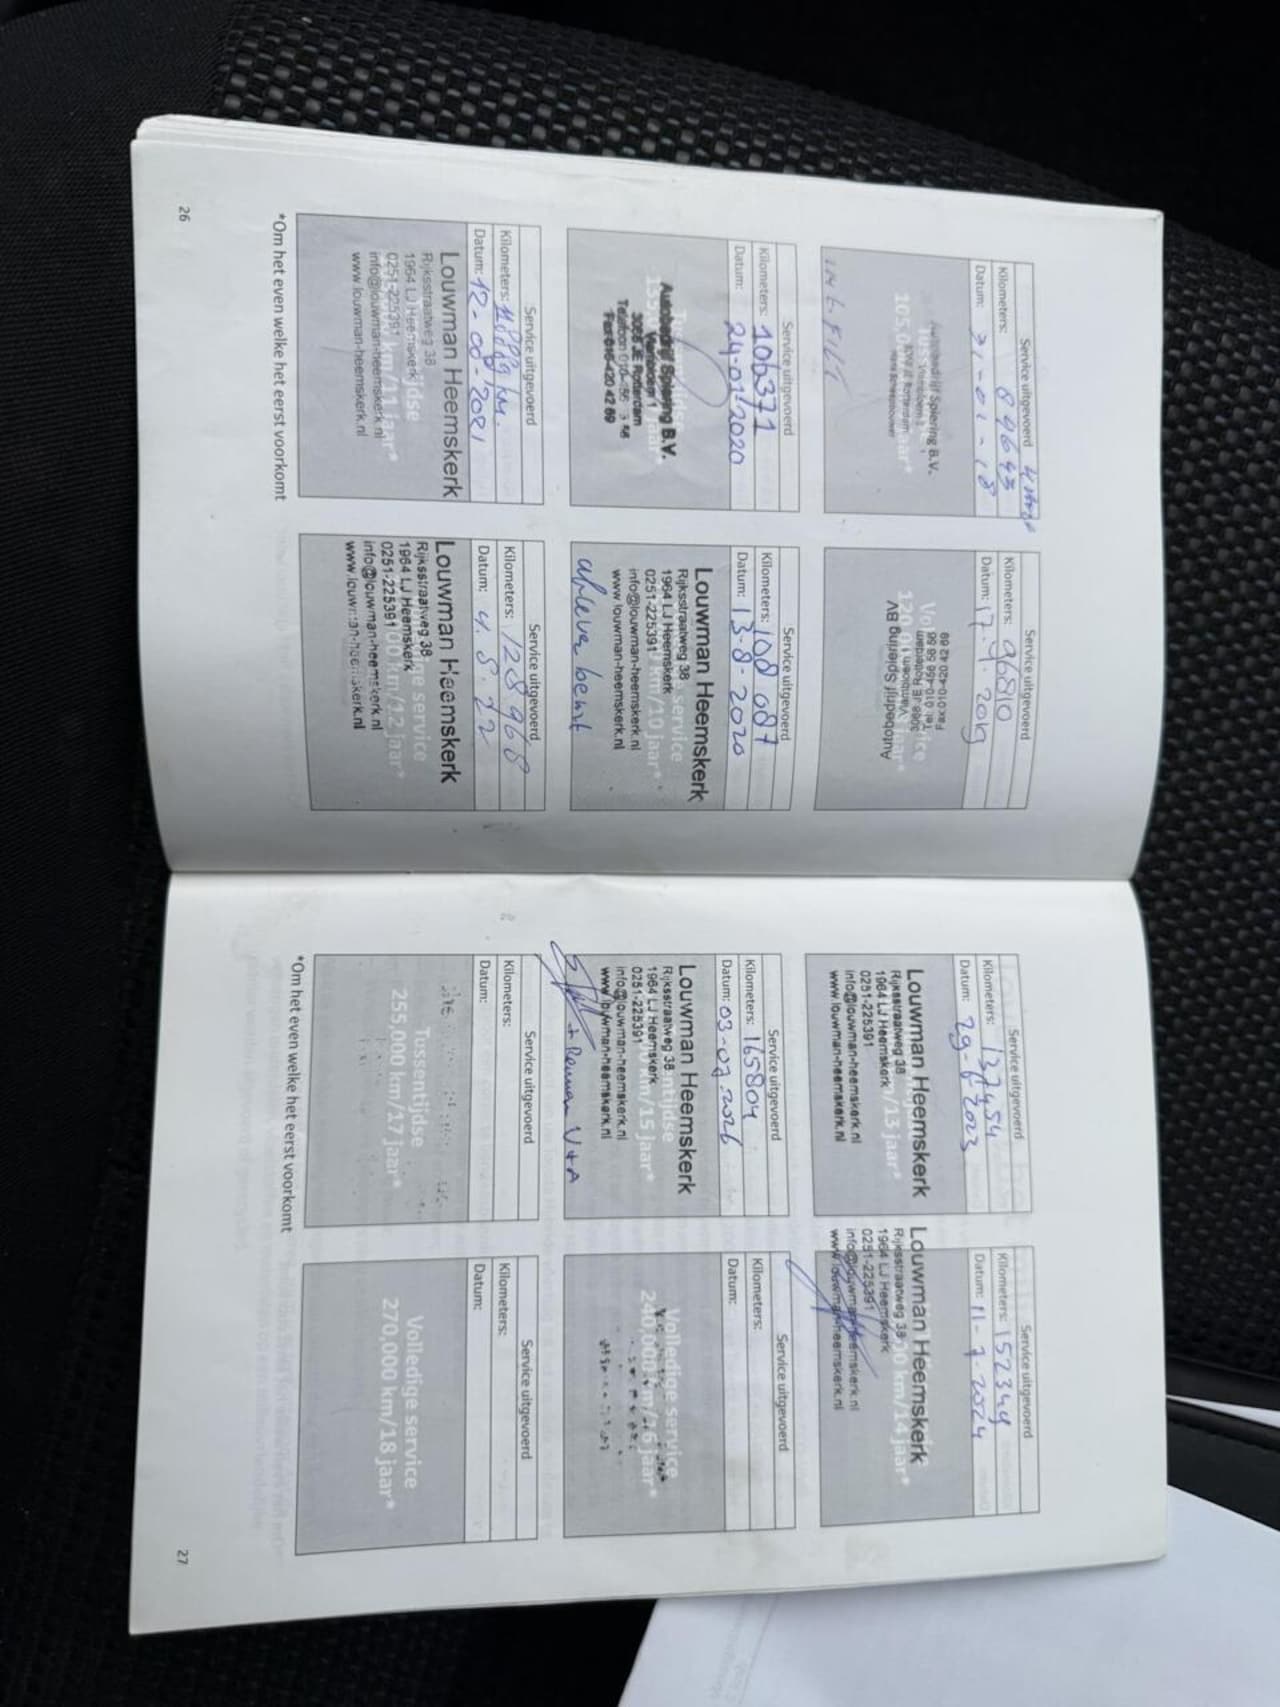 Service uitgevoerd
Kilometers: 89643
Datum: 31-01-18
Autobedrijf Spiering B.V.
Service uitgevoerd
Kilometers: 96810
Datum: 17.4.2019
Autobedrijf Spiering BV
Vlambloem 1
3068 JE Rotterdam
Tel. 010-456 56 56
Fax 010-420 42 69
Service uitgevoerd
Kilometers: 106371
Datum: 24-01-2020
Autobedrijf Spiering B.V.
Vlambloem 1
3068 JE Rotterdam
Fax 010-420 42 69
Service uitgevoerd
Kilometers: 108 087
Datum: 13-8-2020
Louwman Heemskerk
Rijksstraatweg 38
1964 LJ Heemskerk
0251-225391
info@louwman-heemskerk.nl
www.louwman-heemskerk.nl
Service uitgevoerd
Kilometers: km.
Datum: 12-08-2021
Louwman Heemskerk
Rijksstraatweg 38
1964 LJ Heemskerk
0251-225391
info@louwman-heemskerk.nl
www.louwman-heemskerk.nl
Service uitgevoerd
Kilometers: 128968
Datum: 4.8.22
Louwman Heemskerk
Rijksstraatweg 38
1964 LJ Heemskerk
0251-225391
info@louwman-heemskerk.nl
www.louwman-heemskerk.nl
*Om het even welke het eerst voorkomt
26
Service uitgevoerd
Kilometers: 137454
Datum: 29-6-2023
Louwman Heemskerk
Rijksstraatweg 38
1964 LJ Heemskerk
0251-225391
info@louwman-heemskerk.nl
www.louwman-heemskerk.nl
Service uitgevoerd
Kilometers: 152349
Datum: 11-7-2024
Louwman Heemskerk
Rijksstraatweg 38
1964 LJ Heemskerk
0251-225391
info@louwman-heemskerk.nl
www.louwman-heemskerk.nl
Service uitgevoerd
Kilometers: 165804
Datum: 03-07-2026
Louwman Heemskerk
Rijksstraatweg 38
1964 LJ Heemskerk
0251-225391
info@louwman-heemskerk.nl
www.louwman-heemskerk.nl
+ Remmen V+A
Service uitgevoerd
Kilometers:
Datum:
Volledige service
240,000 km/16 jaar*
Service uitgevoerd
Kilometers:
Datum:
Tussentijdse
255,000 km/17 jaar*
Service uitgevoerd
Kilometers:
Datum:
Volledige service
270,000 km/18 jaar*
*Om het even welke het eerst voorkomt
27